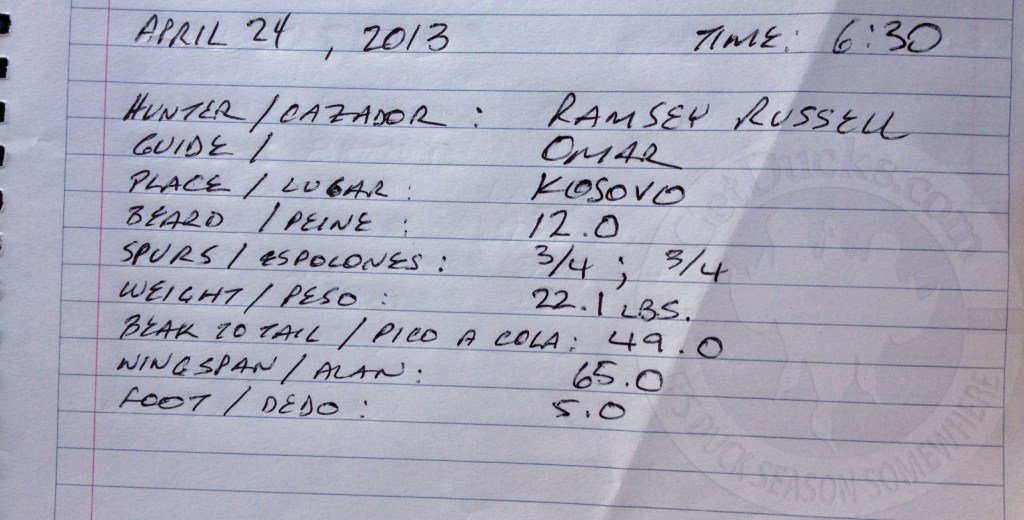 APRIL 24, 2013 TIME: 6:30
HUNTER / CAZADOR : RAMSEY RUSSELL
GUIDE / OMAR
PLACE / LUGAR : KOSOVO
BEARD / PEINE : 12.0
SPURS / ESPOLONES : 3/4 ; 3/4
WEIGHT / PESO : 22.1 LBS.
BEAK TO TAIL / PICO A COLA: 49.0
WINGSPAN / ALAN : 65.0
FOOT / DEDO : 5.0
GetDucks.com
DUCK SEASON SOMEWHERE